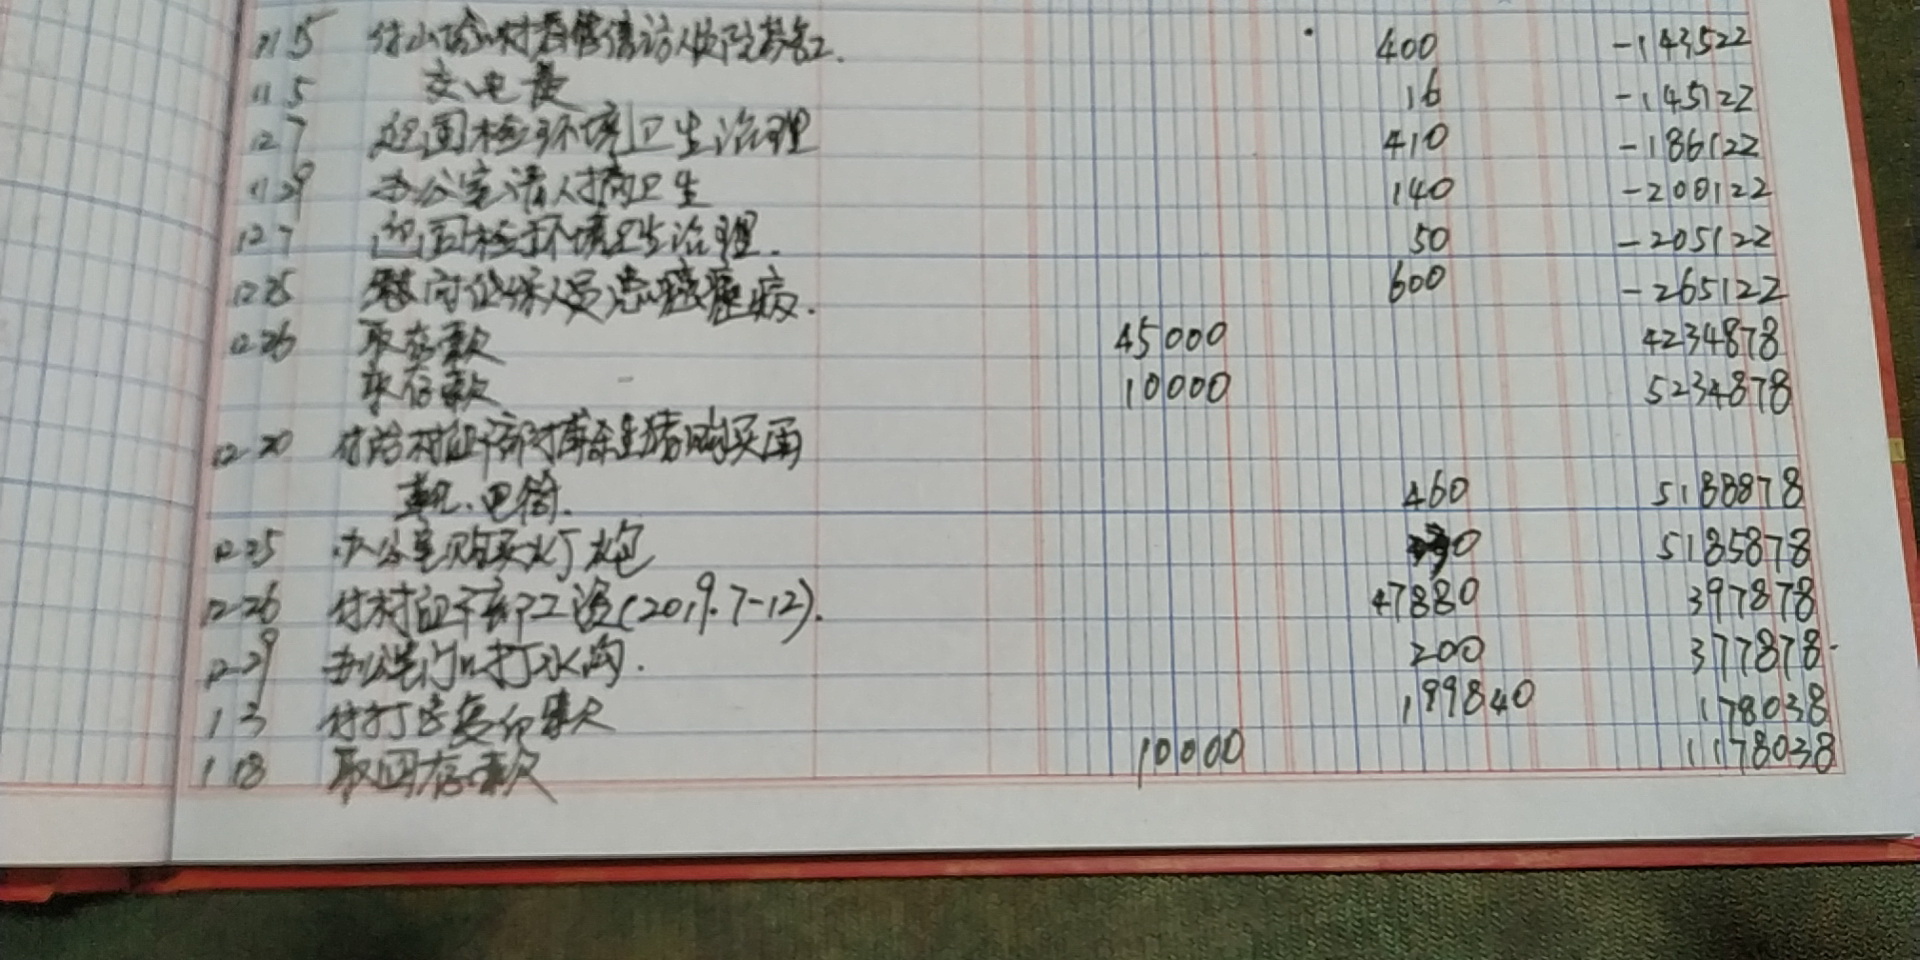 11 5 付 村 信访人 400 -143522
11 5 交电费 16 -145122
12 7 迎国检环境卫生治理 410 -186122
11 29 办公室请人搞卫生 140 -200122
12 7 迎国检环境卫生治理. 50 -205122
12 25 慰问低保人员患 病. 600 -265122
12 26 取存款 45000 4234878
取存款 10000 5234878
12 20 付给村组干部 购买雨
靴、电筒. 460 5188878
12 25 办公室购买灯炮 30 5185878
12 26 付村组干部工资(2019.7-12). 47880 397878
12 29 办公室门口打水沟. 200 377878
1 3 付打字复印款 199840 178038
1 18 取回存款 10000 1178038